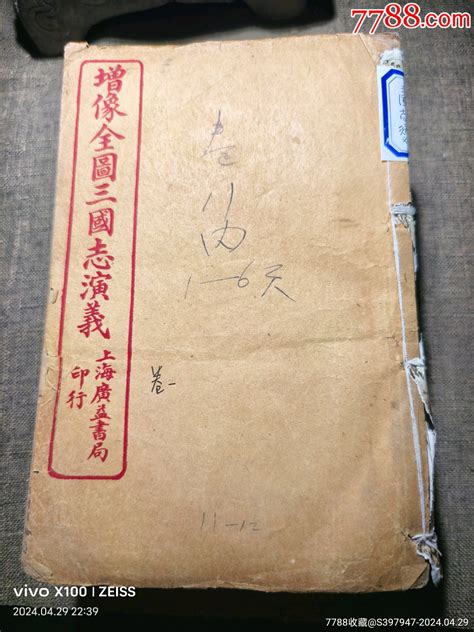 7788.com
增像全圖三國志演義
上海廣益書局
印行
卷一
1-6
11-12
vivo X100 | ZEISS
2024.04.29 22:39
7788收藏@S397947-2024.04.29